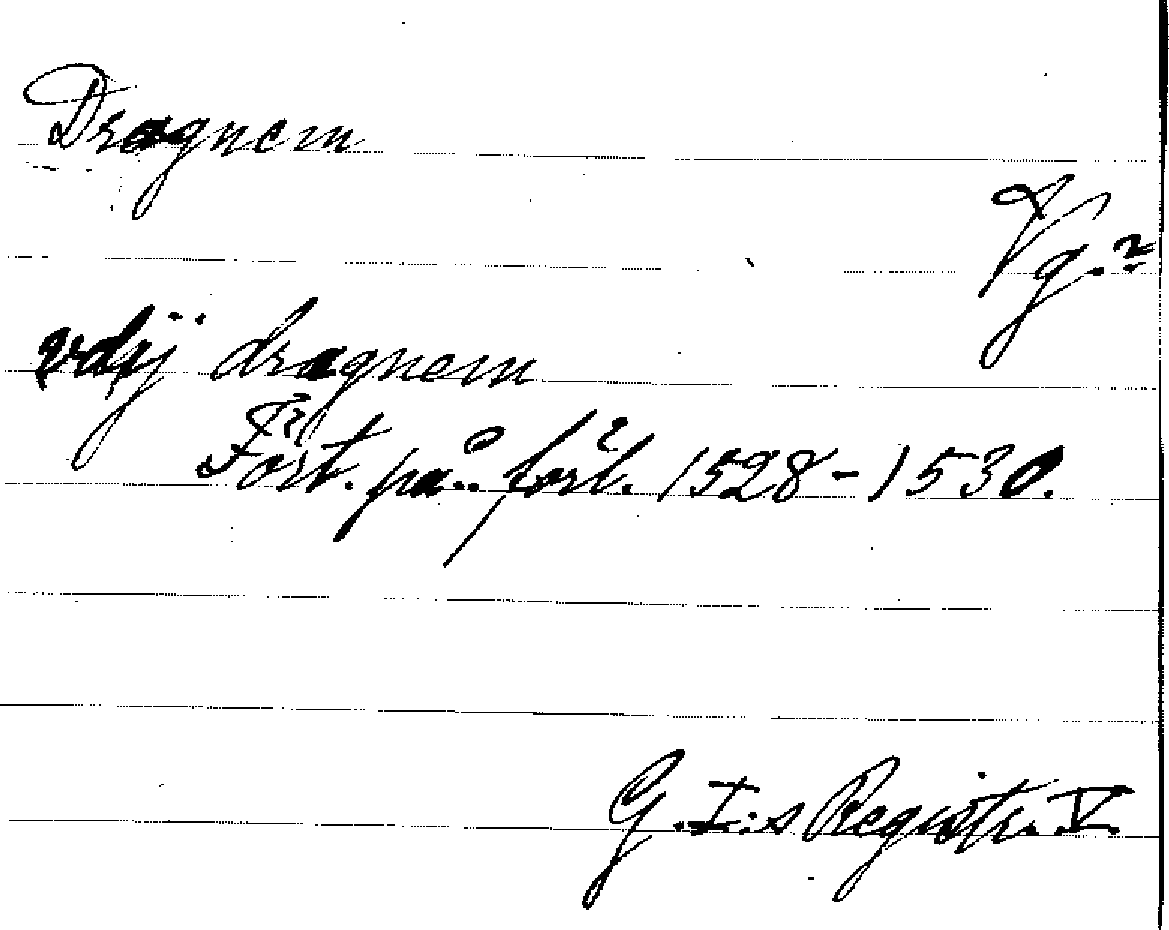 Dragnem
Vg.
vdij dragnem
Fört. på förl. 1528-1530.
G.I:s Registr. V.